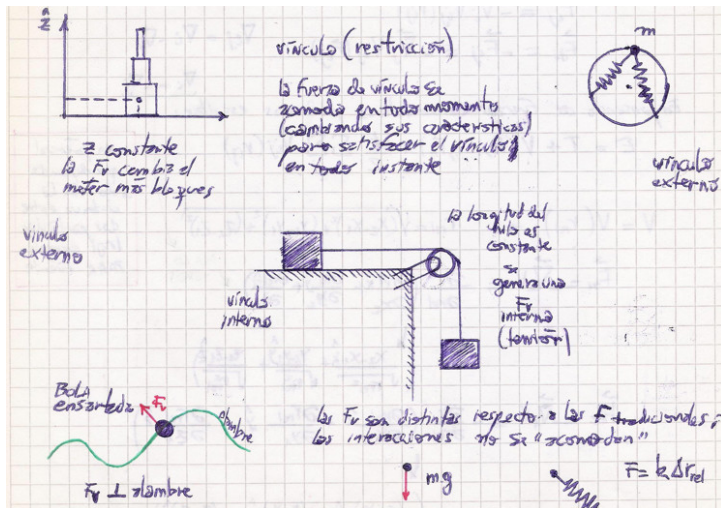 ẑ
z constante
la Fv cambia al
meter más bloques
vínculo
externo
vínculo (restricción)
la fuerza de vínculo se
acomoda en todo momento
(cambiando sus características)
para satisfacer el vínculo
en todo instante
m
vínculo
externo
la longitud del
hilo es
constante
se
genera una
Fv
interna
(tensión)
vínculo
interno
Bola
ensartada
Fv
alambre
Fv ⊥ alambre
las Fv son distintas respecto a las F tradicionales;
las interacciones no se "acomodan"
mg
F = k Δr rel